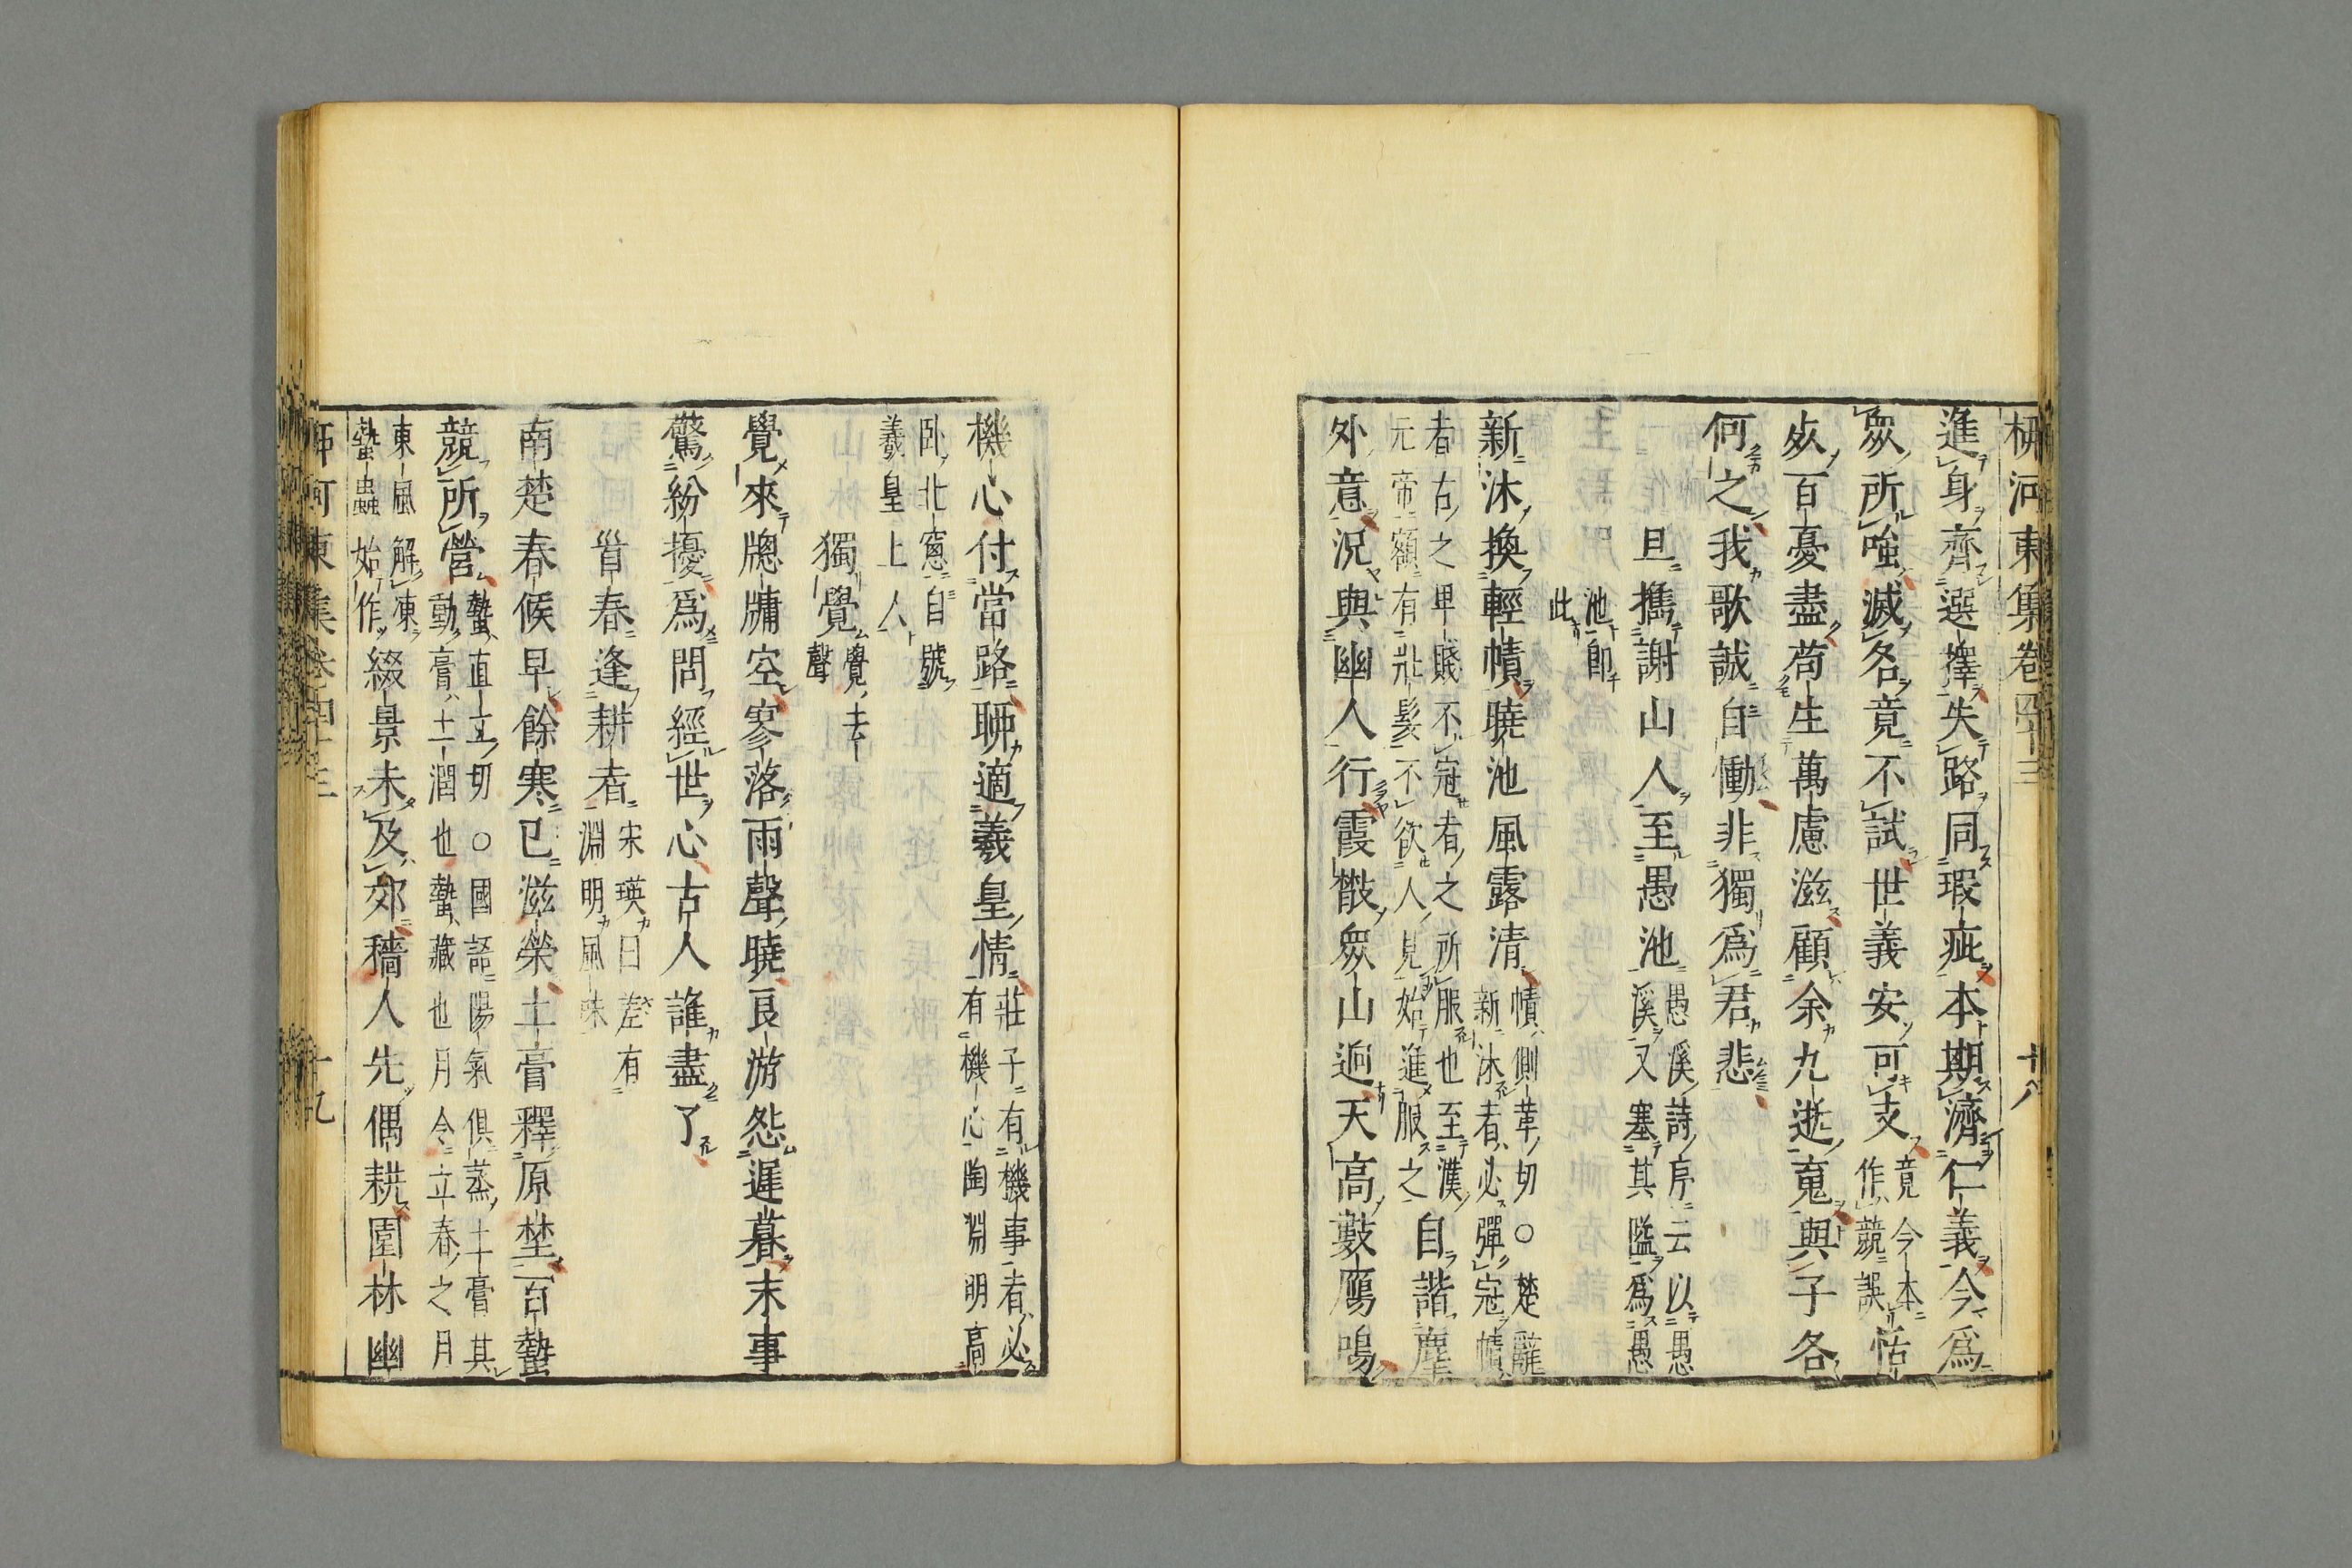 柳河東集卷四十三 十八
進身齊選擇失路同瑕疵本期濟仁義今爲
衆所嗤滅名竟不試世義安可支
竟今本
作競誤
恬
死百憂盡苟生萬慮滋顧余九逝䰟與子各
何之我歌誠自慟非獨爲君悲
旦攜謝山人至愚池
愚溪詩序云以愚
溪又塞其隘爲愚
池卽
此
新沐換輕幘曉池風露清
幘側革切○楚辭
新沐者必彈冠幘
者古之卑賤不冠者之所服也至漢
元帝額有壯髮不欲人見始進服之
自諧塵
外意況與幽人行霞散衆山逈天高數鴈鳴
機心付當路聊適羲皇情
莊子有機事者必
有機心陶淵明高
臥北窓自號
羲皇上人
獨覺
覺去
聲
覺來牕牖空寥落雨聲曉良游怨遲暮末事
驚紛擾爲問經世心古人誰盡了
首春逢耕者
宋瑛曰差有
淵明風味
南楚春候早餘寒已滋榮土膏釋原埜百蟄
競所營
蟄直立切○國語陽氣俱蒸土膏其
動膏土潤也蟄藏也月令立春之月
東風解凍
蟄蟲始作
綴景未及郊穡人先偶耕園林幽
柳河東集卷四十三 十九